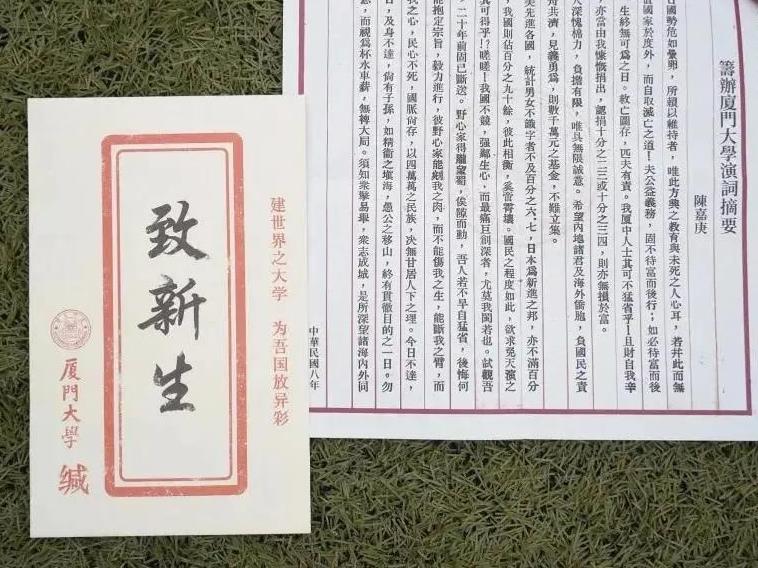 籌辦廈門大學演詞摘要
陳嘉庚
國勢危如纍卵，所賴以維持者，唯此方興之教育與未死之人心耳，若幷此而無
國家於度外，而自取滅亡之道！夫公益義務，固不待富而後行；如必待富而後
生終無可為之日。救亡圖存，匹夫有責。我厦中人士其可不猛省乎！且財自我辛
亦當由我慷慨捐出，認捐十分之二三或十分之三四，則亦無損於富。
人深愧棉力，負擔有限，唯具無限誠意。希望內地諸君及海外僑胞，負國民之責
共濟，見義勇爲，則數千萬元之基金，不難立集。
美先進各國，統計男女不識字者不及百分之六、七，日本爲新進之邦，亦不滿百分
我國則佔百分之九十餘，彼此相衡，奚啻霄壤。國民之程度如此，欲求免天演之
其可得乎！？嗟嗟！我國不競，强鄰生心，而最痛巨創深者，尤莫我閩若也。試觀吾
二十年前固已斷送。野心家得隴望蜀，俟隙而動，吾人若不早自猛省，後悔何
能抱定宗旨，毅力進行，彼野心家能剜我之肉，而不能傷我之生，能斷我之臂，而
我之心，民心不死，國脈尙存，以四萬萬之民族，决無甘居人下之理。今日不達，
日，及身不達，尙有子孫，如精衞之塡海，愚公之移山，終有貫徹目的之一日。勿
而視爲杯水車薪，無裨大局。須知衆擎易舉，衆志成城，是所深望諸海內外同
中華民國八年
建世界之大学 为吾国放异彩
致新生
厦門大學 缄